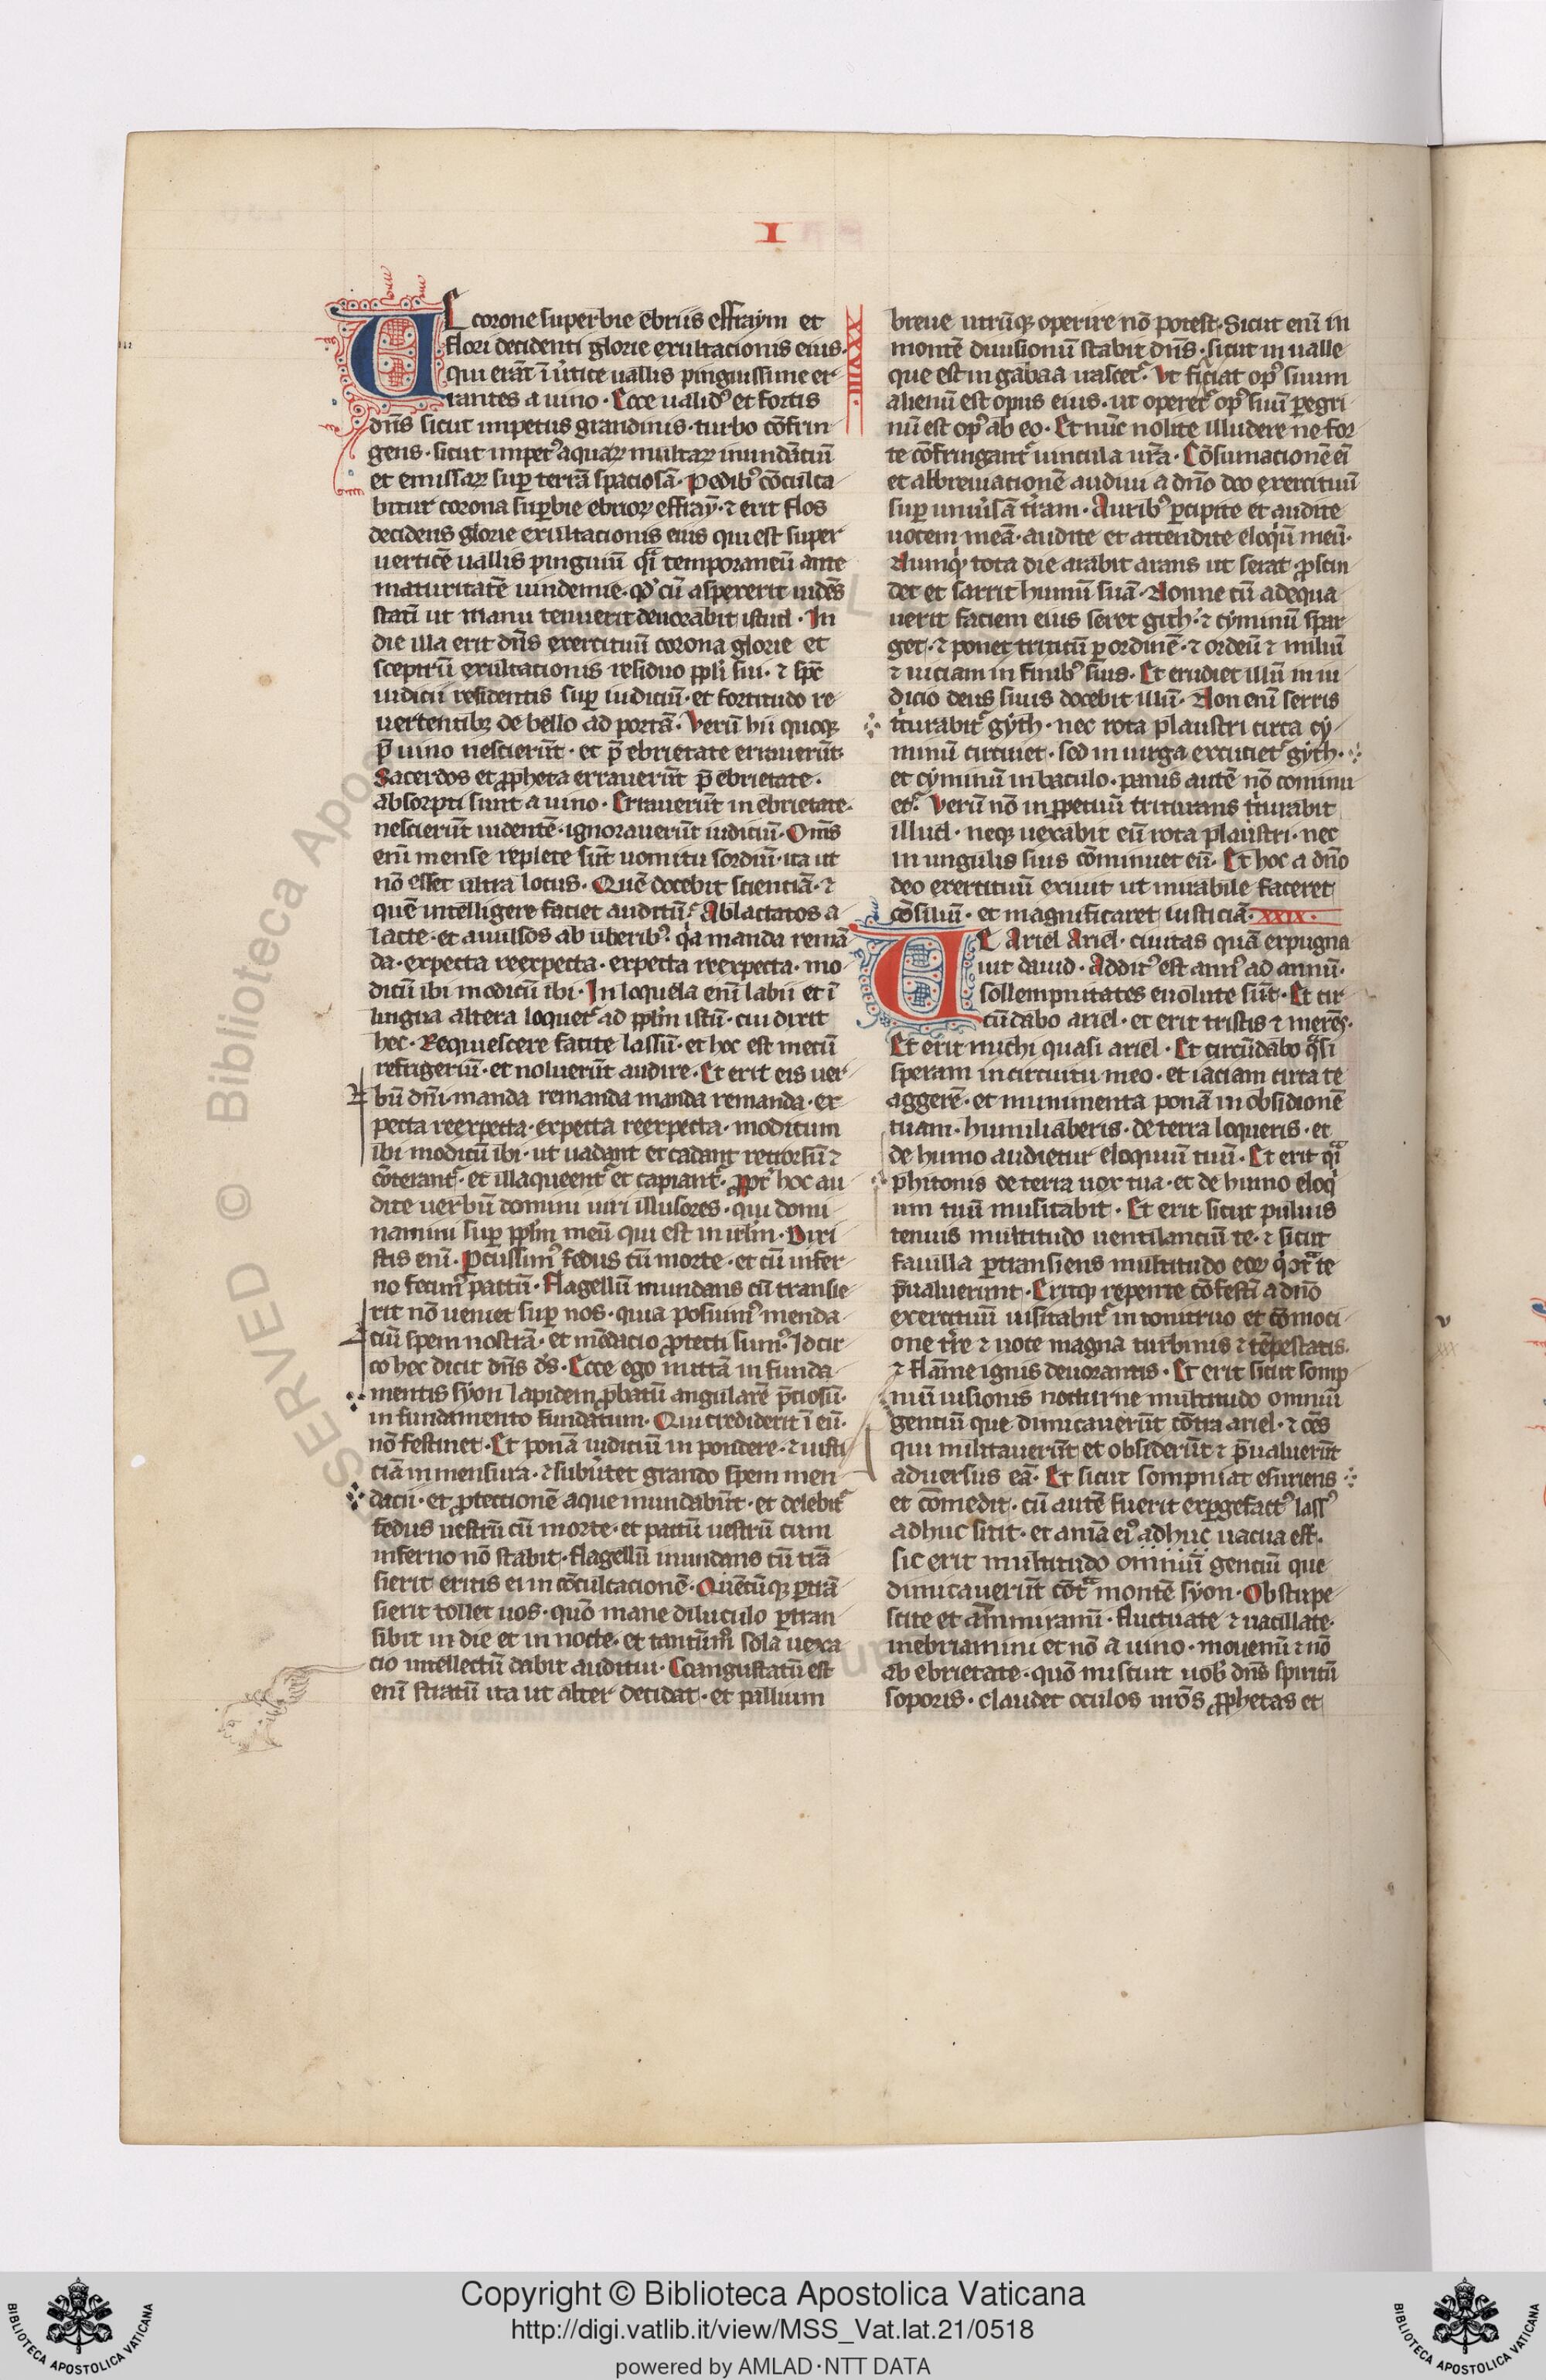 I
UE corone superbie ebriis effraym et
flori decidenti glorie exultacionis eius.
qui erāt ī ũtice uallis pinguissime er
rantes a uino. Ecce ualid⁹ et fortis
dñs sicut impetus grandinis. turbo cōfrin
gens. sicut impet⁹ aquaꝝ multaꝝ inundāciū
et emissaꝝ suꝑ terrā spaciosā. Pedib⁹ cōculca
bitur corona suꝑbie ebrioꝝ effraȳ. ⁊ erit flos
decidens glorie exultacionis eius qui est super
uerticē uallis pinguiū q̃i temporaneū ante
maturitatē uindemie. qd̓ cū aspexerit uidēs
statī ut manu tenuerit deuorabit istud. In
die illa erit dñs exercituū corona glorie et
sceptrū exultacionis residuo ppl̓i sui. ⁊ spc̄
iudicii residentis suꝑ iudiciū. et fortitudo re
uertentibꝫ de bello ad portā. Verū hii quoqꝫ
p̄ uino nescierūt. et p̄ ebrietate errauerūt.
Sacerdos et ꝓpheta errauerūt p̄ ebrietate.
absorpti sunt a uino. Errauerūt in ebrietate.
nescierūt uidentē. ignorauerūt iudiciū. Om̄s
enī mense replete sūt uomitu sordiū. ita ut
nō esset ultra locus. Quē docebit scientiā. ⁊
quē intelligere faciet auditū. Ablactatos a
lacte. et auulsos ab uberib⁹. q̓a manda remā
da. expecta reexpecta. expecta reexpecta. mo
dicū ibi modicū ibi. In loquela enī labii et ī
lingua altera loquet̃ ad ppl̓m istū. cui dixit
hec. Requiescere facite lassū. et hoc est meum
refrigeriū. et noluerūt audire. Et erit eis uer
bū dñi. manda remanda manda remanda. ex
pecta reexpecta. expecta reexpecta. modicum
ibi modicū ibi. ut uadant et cadant retrorsū ⁊
cōterant̃. et illaqueent̃ et capiant̃. ꝓpt̓ hoc au
dite uerbū domini uiri illusores. qui domi
namini suꝑ ppl̓m meū qui est in irl̓m. Dixi
stis enī. ꝑcussim⁹ fedus cū morte. et cū infer
no fecim⁹ pactū. Flagellū inundans cū transie
rit nō ueniet suꝑ nos. quia posuim⁹ menda
ciū spem nostrā. et mēdacio ꝓtecti sum⁹. Idcir
co hec dicit dñs ds̄. Ecce ego mittā in funda
mentis syon lapidem ꝓbatū angularē p̄ciosū.
in fundamento fundatum. Qui crediderit ī eū.
nō festinet. Et ponā iudiciū in pondere. ⁊ iusti
ciā in mensura. ⁊ subũtet grando spem men
dacii. et ꝓtectionē aque inundabūt. et delebit̃
fedus uestrū cū morte. et pactū uestrū cum
inferno nō stabit. Flagellū inundans cū trā
sierit eritis ei in cōculcacionē. Quēcūqꝫ ꝑtrā
sierit tollet uos. quō mane diluculo ꝑtran
sibit in die et in nocte. et tantūm̓ sola uexa
cio intellectū dabit auditui. Coangustatū est
enī stratū ita ut alter decidat. et pallium
XXVIII.
breue utrūqꝫ operire nō potest. Sicut enī in
montē diuisionū stabit dñs. sicut in ualle
que est in gabaa irascet̃. Ut faciat op⁹ suum
alienū est opus eius. ut operet̃ op⁹ suū ꝑegri
nū est op⁹ ab eo. Et nūc nolite illudere ne for
te cōfringant̃ uincula ur̄a. Cōsumacionē eī
et abbreuiationē audiui a dño deo exercituū
suꝑ uniũsā t̓ram. Aurib⁹ ꝑcipite et audite
uocem meā. audite et attendite eloq̓ū meū.
Numq̓d tota die arabit arans ut serat. ꝓscin
det et sarrit humū suā. Nonne cū adequa
uerit faciem eius seret gith. ⁊ cyminū spar
get. ⁊ ponet triticū ꝑ ordinē. ⁊ ordeū ⁊ miliū
⁊ uiciam in finib⁹ suis. Et erudiet illū in iu
dicio deus suus docebit illū. Non enī serris
t̓turabit̃ gyth. nec rota plaustri circa cy
minū circuiet. sed in uirga excutiet̃ gyth.
et cyminū in baculo. panis autē nō cominu
et̃. Verū nō in ꝓpetuū triturans t̓turabit
illud. neqꝫ uexabit eū rota plaustri. nec
in ungulis suis cōminuet eū. Et hoc a dño
deo exercituū exiuit ut mirabile faceret
cōsiliū. et magnificaret iusticiā. XXIX.
UE Ariel Ariel. ciuitas quā expugna
uit dauid. Addit⁹ est ann⁹ ad annū.
sollempnitates euolute sūt. Et cir
cūdabo ariel. et erit tristis ⁊ merēs.
Et erit michi quasi ariel. Et circūdabo q̃si
speram in circuitu meo. et iaciam circa te
aggerē. et munimenta ponā in obsidionē
tuam. humiliaberis. de terra loqueris. et
de humo audietur eloquiū tuū. Et erit q̃i
phitonis de terra uox tua. et de humo eloq̓
um tuū musitabit. Et erit sicut puluis
tenuis multitudo uentilanciū te. ⁊ sicut
fauilla ꝑtransiens multitudo eoꝝ q̓ ꝯt̃ te
p̄ualuerunt. Eritqꝫ repente cōfestī a dño
exercituū uisitabit̃ in tonitruo et cōmoci
one t̓re ⁊ uoce magna turbinis ⁊ tēpestatis.
⁊ flāme ignis deuorantis. Et erit sicut somp
niū uisionis nocturne multitudo omniū
gentiū que dimicauerūt cōtra ariel. ⁊ oēs
qui militauerūt et obsiderūt ⁊ p̄ualuerūt
aduersus eā. Et sicut sompniat esuriens
et cōmedit. cū autē fuerit exꝑgefact⁹ lass⁹
adhuc sitit. et aniā ei⁹ adhuc uacua est.
sic erit multitudo omniū gentiū que
dimicauerūt cōt̃ montē syon. Obstupe
scite et ammiramī. fluctuate ⁊ uacillate.
inebriamini et nō a uino. mouemī ⁊ nō
ab ebrietate. quō miscuit uob̓ dñs spiritū
soporis. claudet oculos ur̄os ꝓphetas et
Copyright © Biblioteca Apostolica Vaticana
http://digi.vatlib.it/view/MSS_Vat.lat.21/0518
powered by AMLAD·NTT DATA
BIBLIOTECA APOSTOLICA VATICANA
BIBLIOTECA APOSTOLICA VATICANA